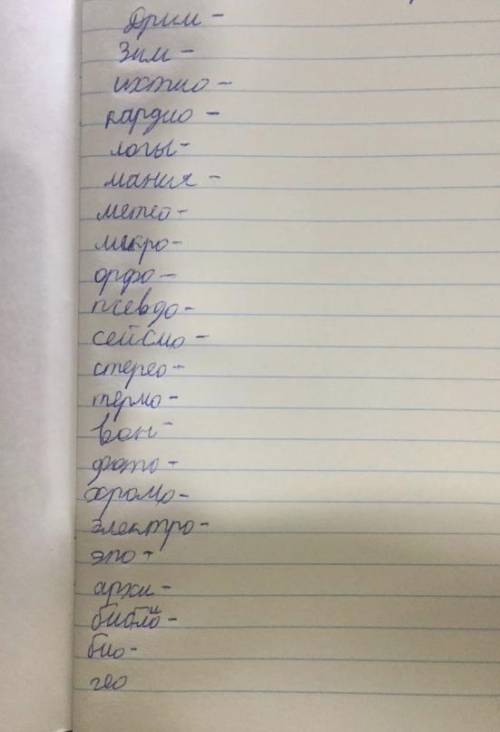 дрим -
Зим -
ихтио -
кардио -
логы -
мания -
метео -
микро -
орфо -
псевдо -
сейсмо -
стерео -
термо -
вон -
фото -
хромо -
электро -
эпо -
архи -
библио -
био -
гео